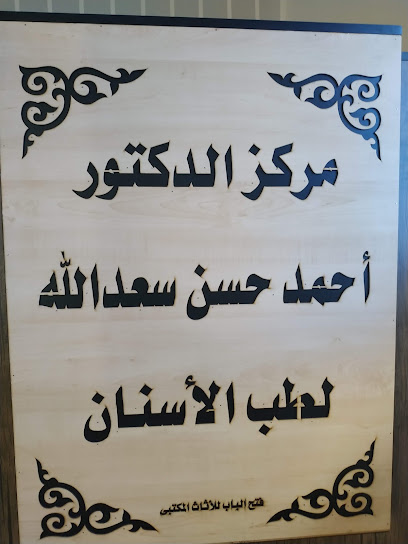 مركز الدكتور
أحمد حسن سعدالله
لطب الأسنان
فتح الباب للأثاث المكتبى